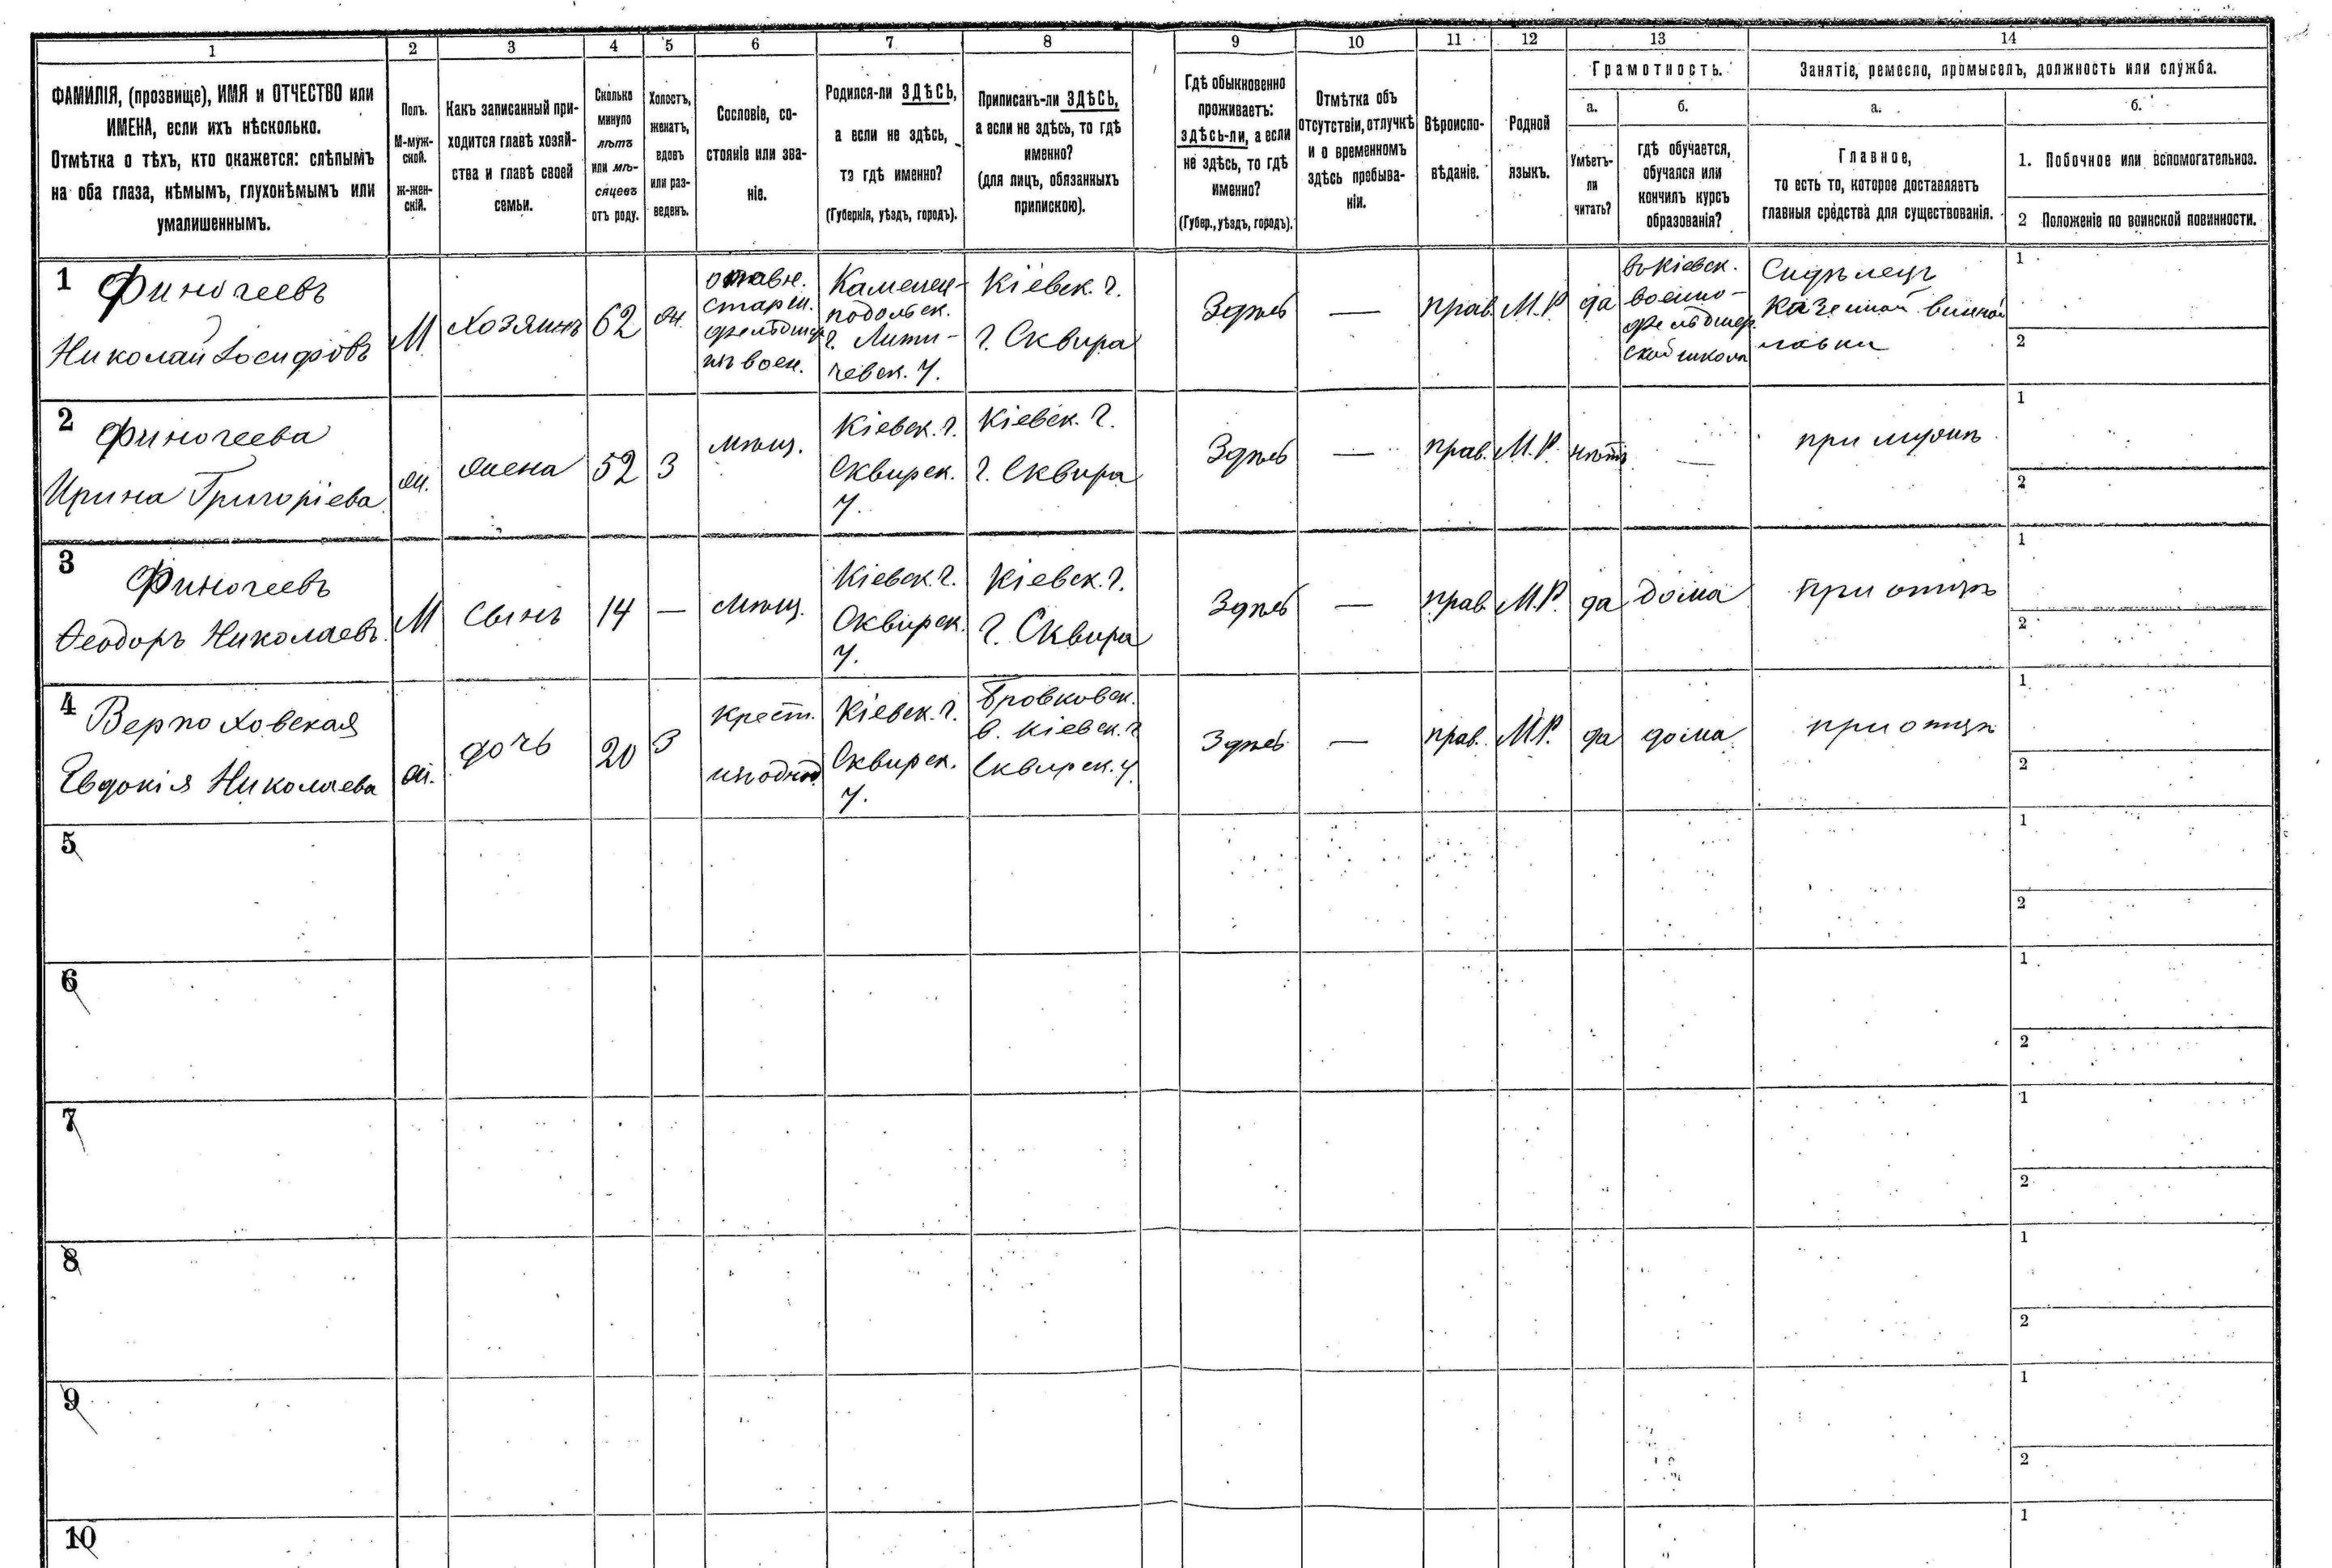 1 2 3 4 5 6 7 8 9 10 11 12 13 14
ФАМИЛІЯ, (прозвище), ИМЯ и ОТЧЕСТВО или
ИМЕНА, если ихъ нѣсколько.
Отмѣтка о тѣхъ, кто окажется: слѣпымъ
на оба глаза, нѣмымъ, глухонѣмымъ или
умалишеннымъ.
Полъ.
М-муж-
ской.
ж-жен-
скій.
Какъ записанный при-
ходится главѣ хозяй-
ства и главѣ своей
семьи.
Сколько
минуло
лѣтъ
или мѣ-
сяцевъ
отъ роду.
Холостъ,
женатъ,
вдовъ
или раз-
веденъ.
Сословіе, со-
стояніе или зва-
ніе.
Родился-ли ЗДѢСЬ,
а если не здѣсь,
то гдѣ именно?
(Губернія, уѣздъ, городъ).
Приписанъ-ли ЗДѢСЬ,
а если не здѣсь, то гдѣ
именно?
(для лицъ, обязанныхъ
припискою).
Гдѣ обыкновенно
проживаетъ:
здѣсь-ли, а если
не здѣсь, то гдѣ
именно?
(Губер., уѣздъ, городъ).
Отмѣтка объ
отсутствіи, отлучкѣ
и о временномъ
здѣсь пребыва-
ніи.
Вѣроиспо-
вѣданіе.
Родной
языкъ.
Грамотность.
а.
Умѣетъ-
ли
читать?
б.
гдѣ обучается,
обучался или
кончилъ курсъ
образованія?
Занятіе, ремесло, промыселъ, должность или служба.
а.
Главное,
то есть то, которое доставляетъ
главныя средства для существованія.
б.
1. Побочное или вспомогательное.
2 Положеніе по воинской повинности.
1 Финогеевъ
Николай Іосифовъ
М
Хозяинъ
62
ж.
отавн.
старш.
фельдшер
изъ воен.
Каменец-
подольск.
г. Лити-
чевск. у.
Кіевск. г.
г. Сквира
Здѣсь
—
прав.
М.Р.
да
въ Кіевск.
военно-
фельдшер
ской школѣ
Сидѣлецъ
Казенной винной
лавки
1
2
2 Финогеева
Ирина Григоріева
ж.
жена
52
З
мѣщ.
Кіевск. г.
Сквирск.
у.
Кіевск. г.
г. Сквира
Здѣсь
—
прав.
М.Р.
нѣтъ
—
при мужѣ
1
2
3 Финогеевъ
Ѳеодоръ Николаевъ
М
Сынъ
14
—
мѣщ.
Кіевск. г.
Сквирск.
у.
Кіевск. г.
г. Сквира
Здѣсь
—
прав.
М.Р.
да
дома
при отцѣ
1
2
4 Верпоховская
Евдокія Николаева
ж.
дочь
20
З
крест.
Кіевск. г.
Сквирск.
у.
Бровковск.
в. Кіевск. г.
Сквирск. у.
Здѣсь
—
прав.
М.Р.
да
дома
при отцѣ
1
2
5
1
2
6
1
2
7
1
2
8
1
2
9
1
2
10
1